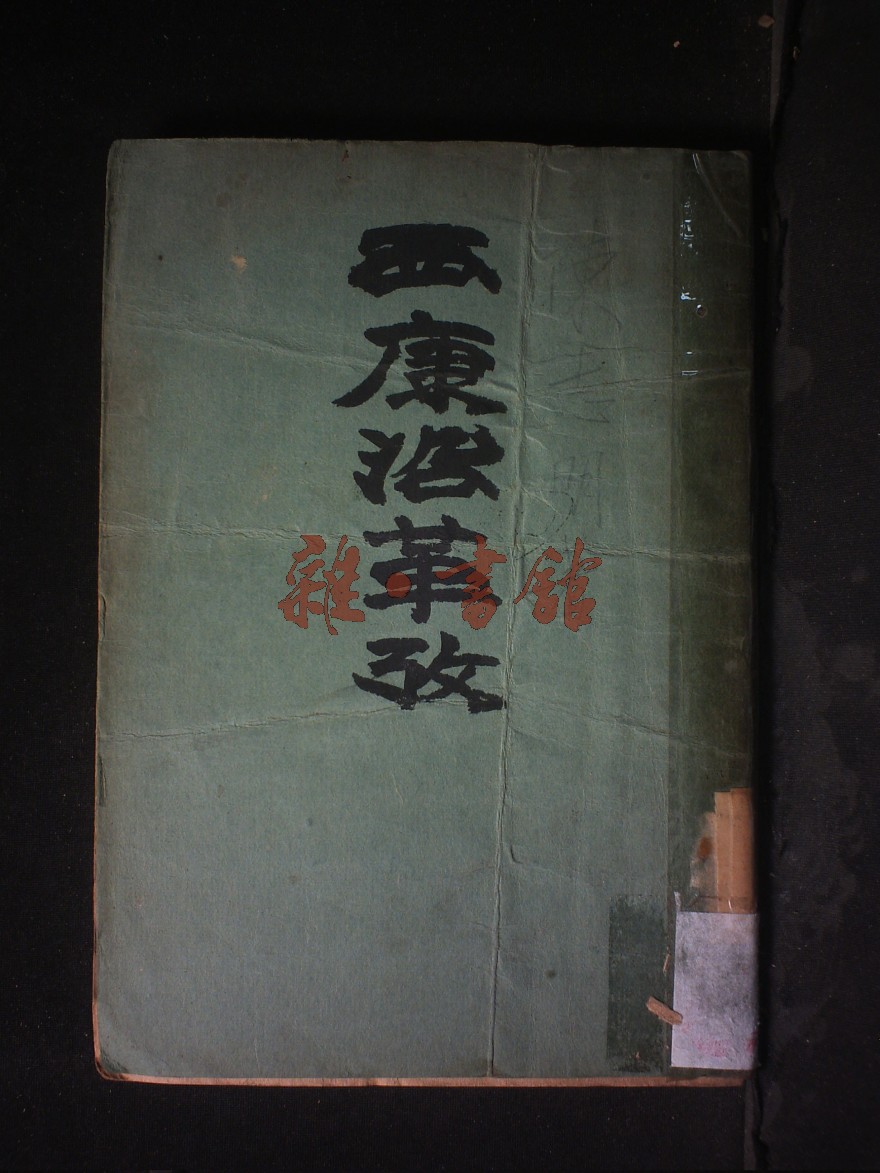 西康沿革攷
雜·書館